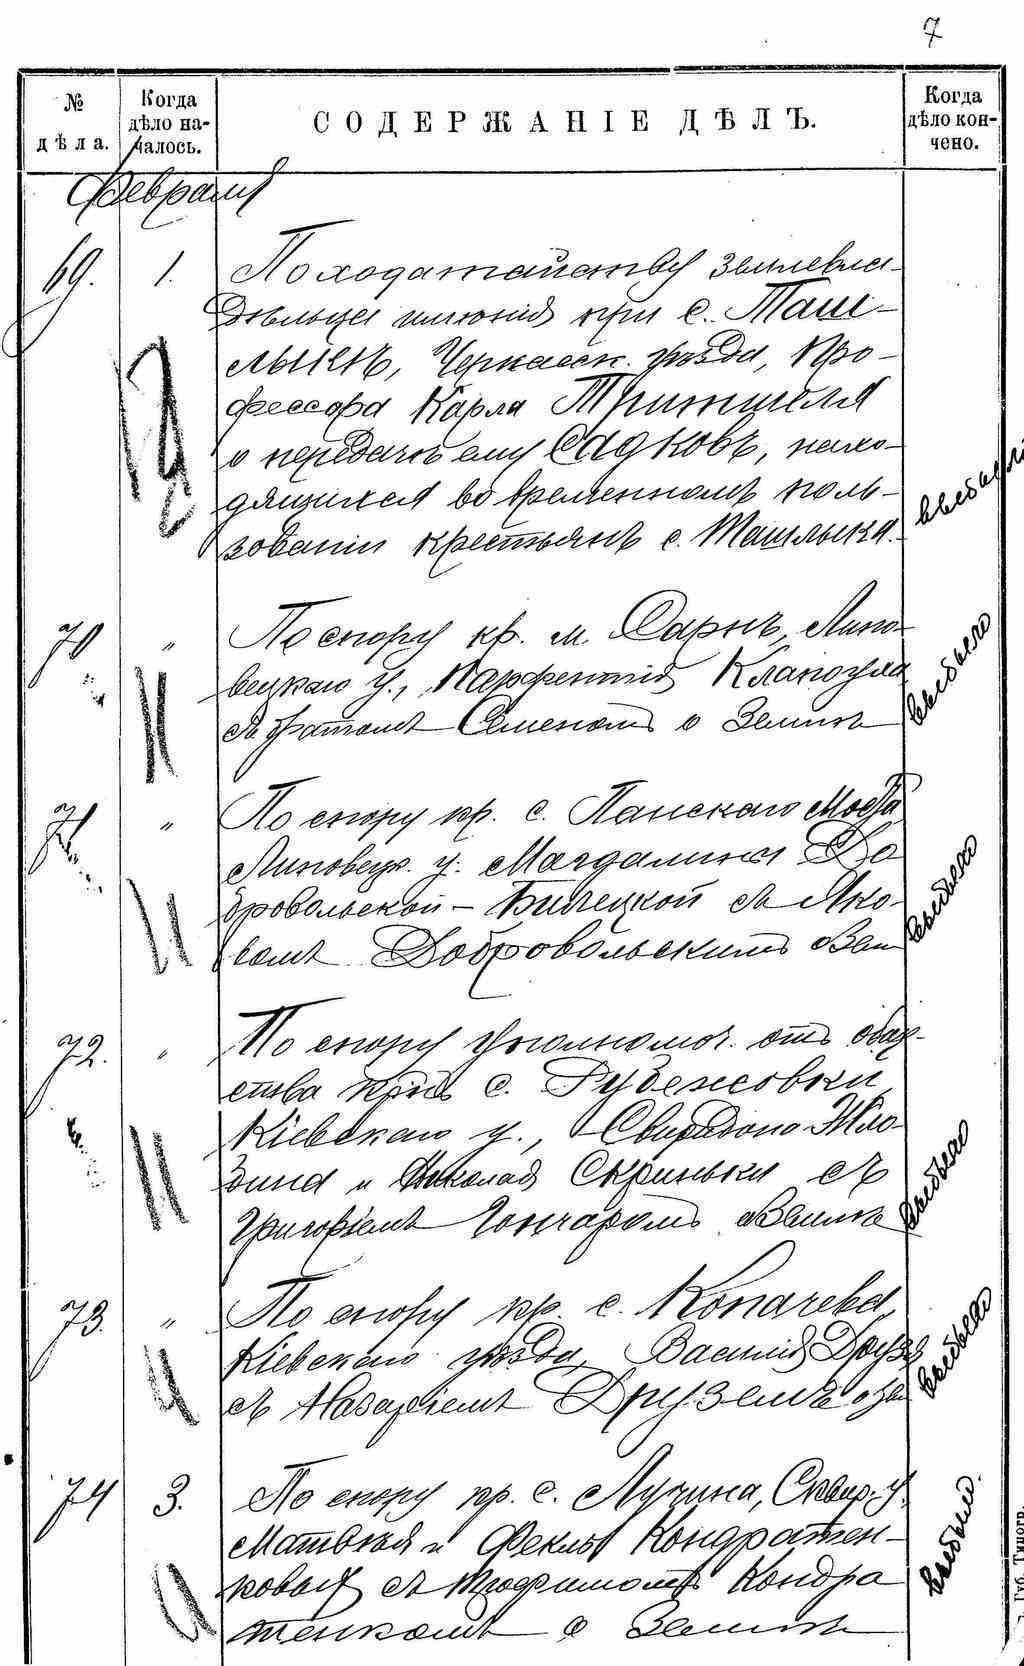 7
№ дѣла.
Когда дѣло началось.
СОДЕРЖАНІЕ ДѢЛЪ.
Когда дѣло кончено.
Февраля
69. 1. По ходатайству землевла-
дѣльца имѣнія при с. Таш-
лыкѣ, Черкасск. уѣзда, про-
фессора Карла Тритшеля
о передачѣ ему садковъ, нахо-
дящихся во временномъ поль-
зованіи крестьянъ с. Ташлыка.
выбыло
70 " По спору кр. м. Сарнъ, Липо-
вецкаго у., Парфентія Клапоуха
съ братомъ Семеномъ о землѣ
выбыло
71 " По спору кр. с. Панскаго Моста,
Липовецк. у. Магдалины До
бровольской-Билецкой съ Яко-
вомъ Добровольскимъ о зем
выбыло
72. " По спору уполномоч. отъ общ-
ства крнъ с. Рубежовки,
Кіевскаго у., Свиридона
и Николая Скриньки съ
Григоріемъ Гончаромъ о землѣ
выбыло
73. " По спору кр. с. Копачева,
Кіевскаго уѣзда, Василія Друзя
съ Назаріемъ Друземъ о зем
выбыло
74 3. По спору кр. с. Лучина, Сквир. у.
Матвѣя и Феклы Кондратен-
ковыхъ съ Трофимомъ Кондра
тенкомъ о землѣ
выбыло.
Губ. Типогр.